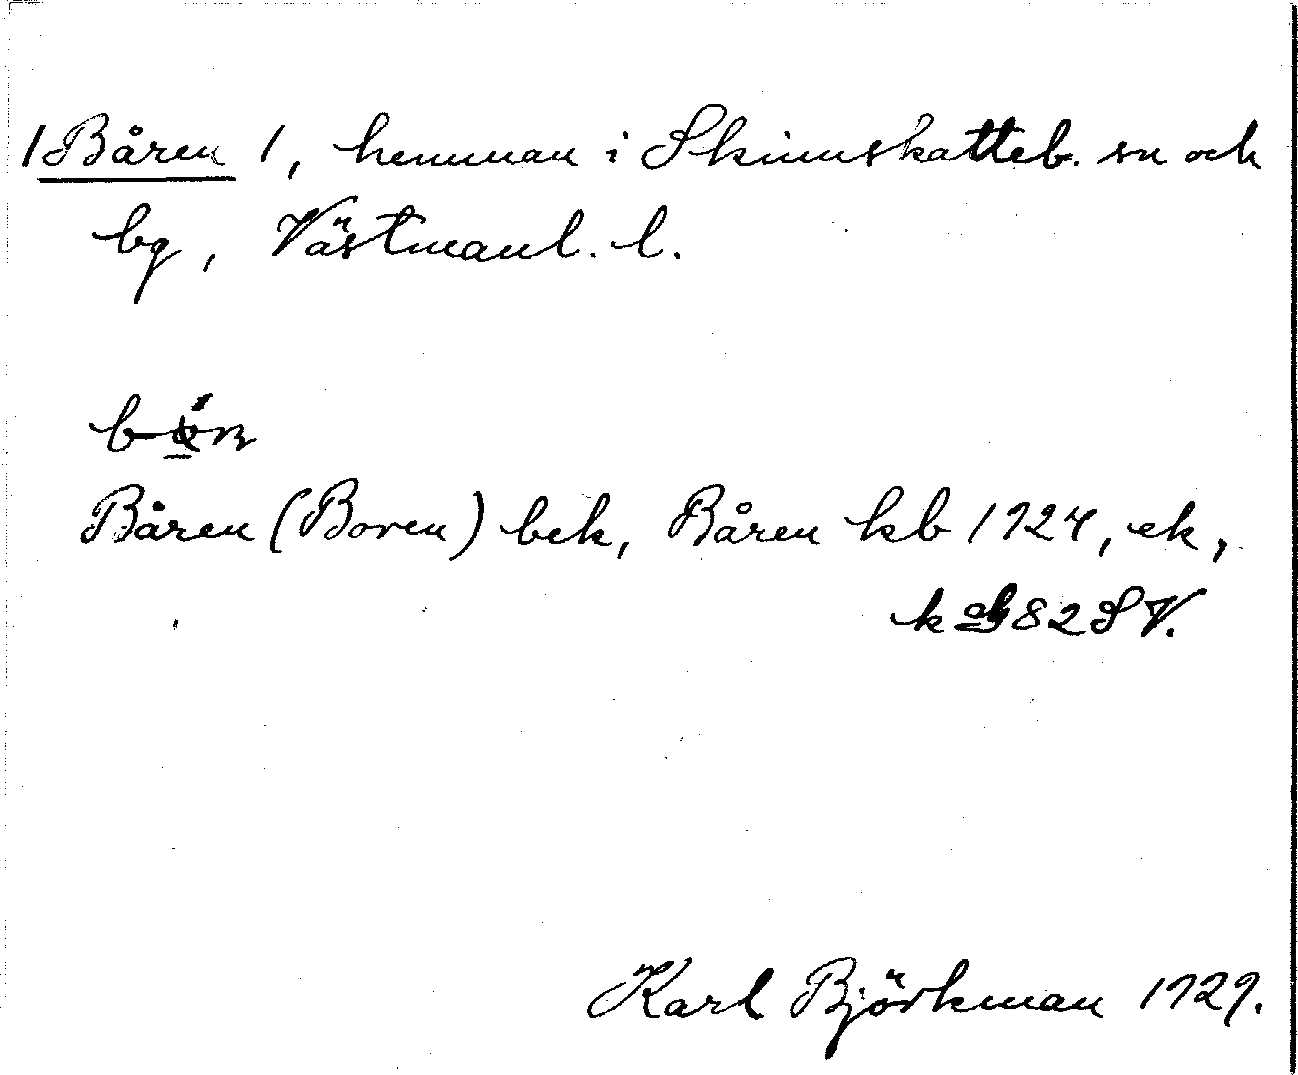 /Båren /, hemman i Skinnskatteb. sn och
bg, Västmanl. l.
Båren (Boren) bek, Båren kb 1924, ek,
k 82 SV.
Karl Björkman 1929.